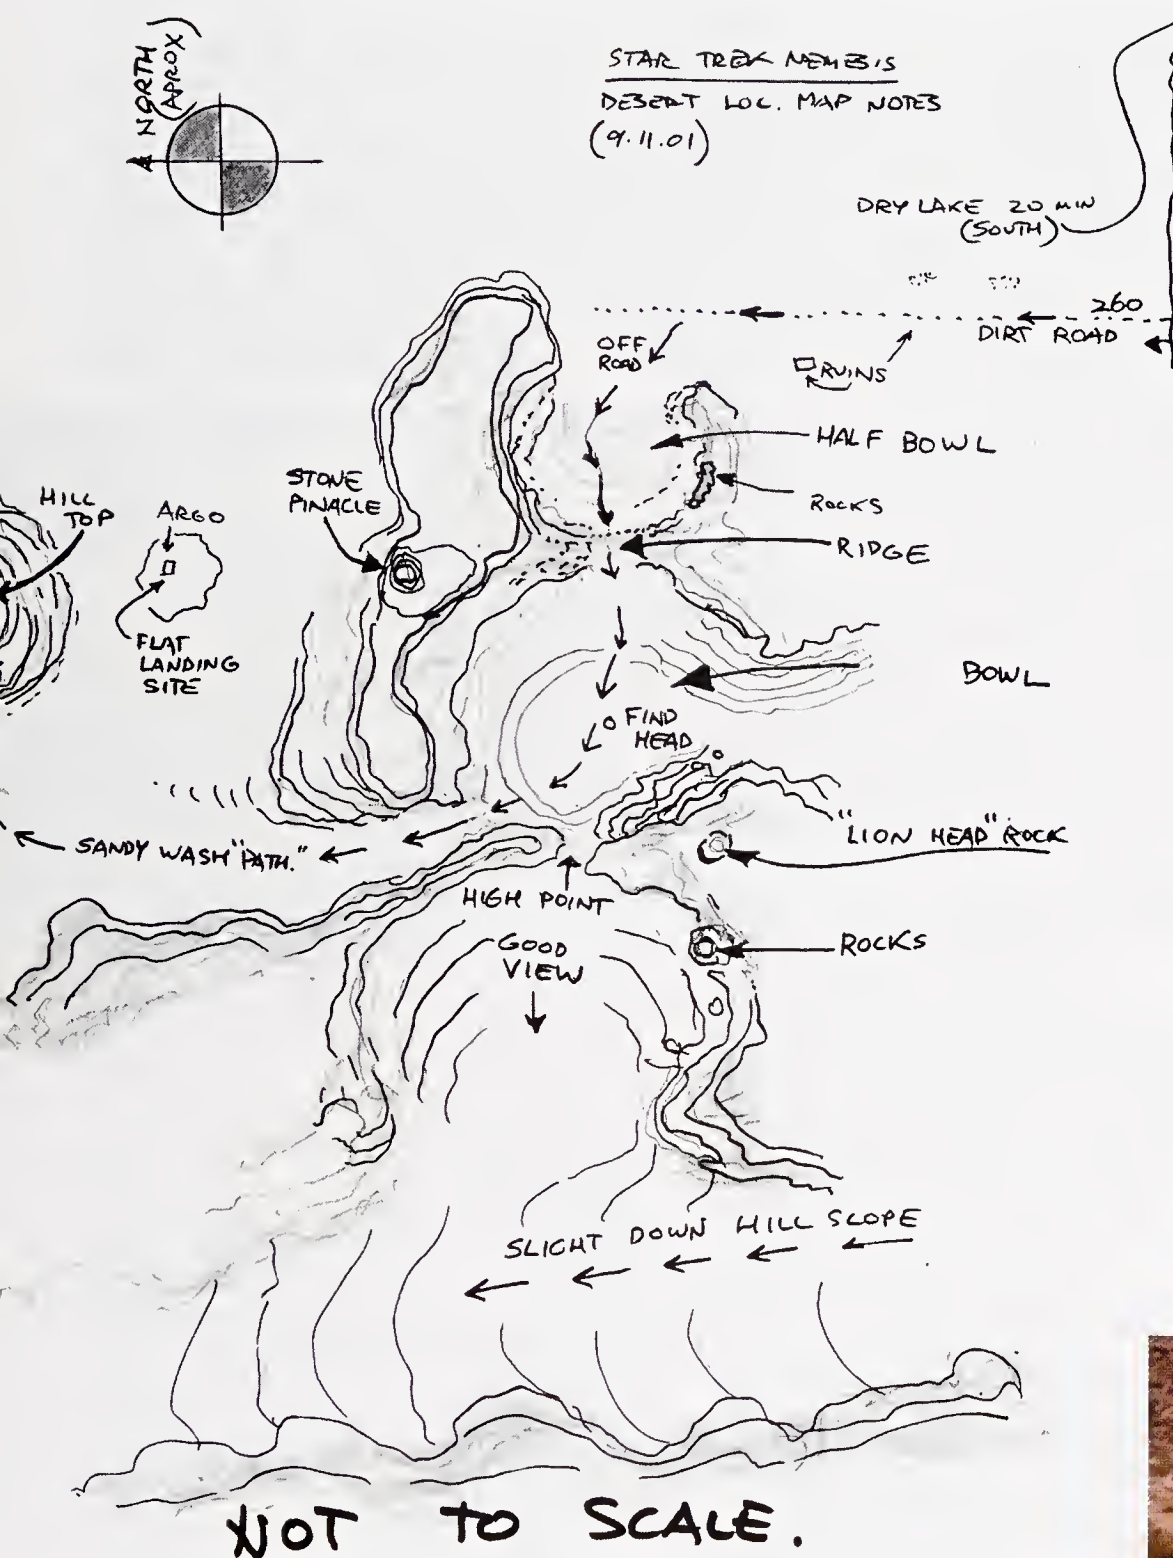 NORTH
(APROX)
STAR TREK NEMESIS
DESERT LOC. MAP NOTES
(9.11.01)
DRY LAKE 20 MIN
(SOUTH)
260
DIRT ROAD
OFF
ROAD
RUINS
HALF BOWL
ROCKS
RIDGE
STONE
PINACLE
HILL
TOP
ARGO
FLAT
LANDING
SITE
BOWL
FIND
HEAD
"LION HEAD" ROCK
SANDY WASH "PATH."
HIGH POINT
GOOD
VIEW
ROCKS
SLIGHT DOWN HILL SLOPE
NOT TO SCALE.